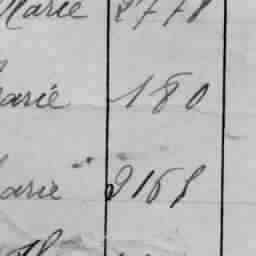 Marie 2778
arié 180
arié 2165